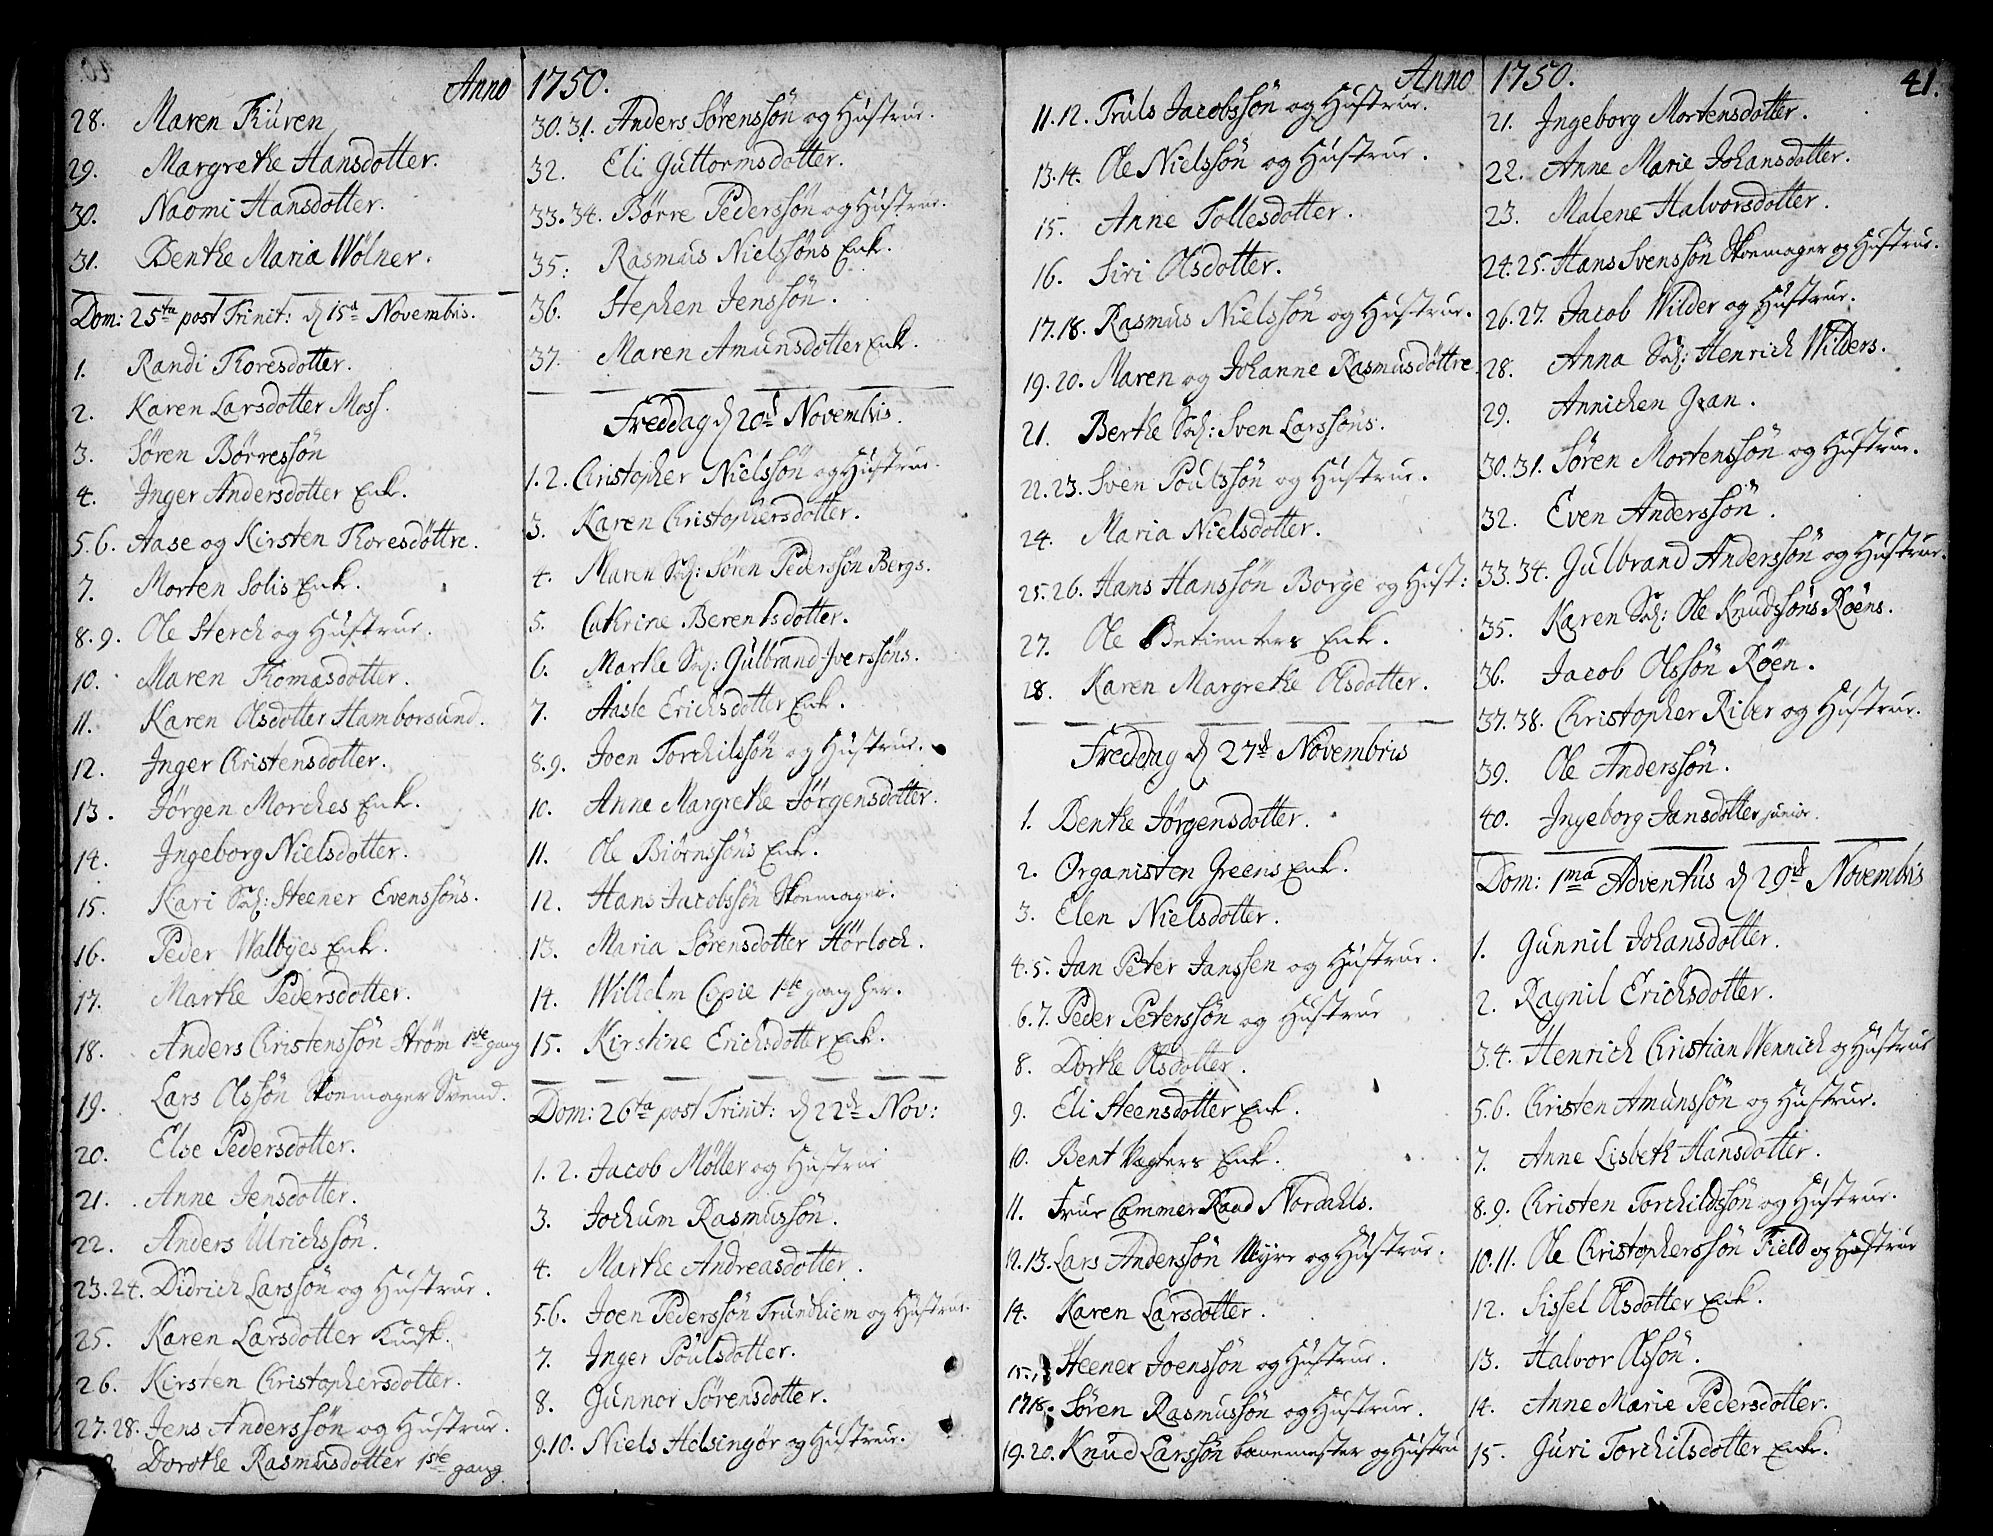 Anno 1750.
28. Maren Thuren
29. Margrethe Hansdotter.
30. Naomi Hansdotter.
31. Benthe Maria Wölner.
Dom: 25ta post Trinit: d 15d Novembris.
1. Randi Thoresdotter.
2. Karen Larsdotter Moss.
3. Sören Börressön
4. Inger Andersdotter Enk.
5.6. Aase og Kirsten Thoresdöttre.
7. Morten Solis Enk.
8.9. Ole Sterch og Hustrue.
10. Maren Thomasdotter.
11. Karen Olsdotter Hamborsund.
12. Inger Christensdotter.
13. Jörgen Morches Enk.
14. Ingeborg Nielsdotter.
15. Kari Sal: Steener Evenssöns.
16. Peder Walbyes Enk.
17. Marthe Pedersdotter.
18. Anders Christenssön Ström 1ste gang
19. Lars Olssön Skoemager Svend.
20. Else Pedersdotter.
21. Anne Jensdotter.
22. Anders Ulrichssön.
23.24. Didrich Larssön og Hustrue.
25. Karen Larsdotter
26. Kirsten Christophersdotter.
27.28. Jens Anderssön og Hustrue.
Dorothe Rasmusdotter 1ste gang.
30.31. Anders Sörenssön og Hustrue.
32. Eli Guttormsdotter.
33.34. Börre Pederssön og Hustrue.
35. Rasmus Nielssöns Enk.
36. Stephen Jenssön.
37. Maren Amunsdotter Enk.
Freddag d 20d Novembris.
1.2. Christopher Nielssön og Hustrue.
3. Karen Christophersdotter.
4. Maren Sal: Sören Pederssön Bergs.
5. Cathrine Berentsdotter.
6. Marthe Sal: Gulbrand Iverssöns.
7. Aasle Erichsdotter Enk.
8.9. Joen Torchilssön og Hustrue.
10. Anne Margrethe Jörgensdotter.
11. Ole Biörnssöns Enk.
12. Hans Jacobssön Skoemager.
13. Maria Sörensdotter Hörloch.
14. Wilhelm Copie 1ste gang her.
15. Kirstine Erichsdotter Enk.
Dom: 26ta post Trinit: d 22d Nov:
1.2. Jacob Möller og Hustrue
3. Jochum Rasmussön.
4. Marthe Andreasdotter.
5.6. Joen Pederssön Trundhiem og Hustrue.
7. Inger Poulsdotter.
8. Gunnor Sörensdotter.
9.10. Niels Helsingör og Hustrue.
Anno 1750. 41.
11.12. Truls Jacobssön og Hustrue.
13.14. Ole Nielssön og Hustrue.
15. Anne Tollesdotter.
16. Siri Olsdotter.
17.18. Rasmus Nielssön og Hustrue.
19.20. Maren og Johanne Rasmusdöttre
21. Berthe Sal: Sven Larssöns.
22.23. Sven Poulssön og Hustrue.
24. Maria Nielsdotter.
25.26. Hans Hanssön Borge og Hust:
27. Ole Betienters Enk.
28. Karen Margrethe Olsdotter.
Freddag d 27d Novembris
1. Benthe Jörgensdotter.
2. Organisten Greens Enk.
3. Elen Nielsdotter.
4.5. Jan Peter Janssen og Hustrue.
6.7. Peder Peterssön og Hustrue
8. Dorthe Olsdotter.
9. Eli Steensdotter Enk.
10. Bent Vagters Enk.
11. Frue Cammer Raad Nordahls.
12.13. Lars Anderssön Myre og Hustrue.
14. Karen Larsdotter.
15. Steener Joenssön og Hustrue.
17.18. Sören Rasmussön og Hustrue.
19.20. Knud Larssön banemester og Hustru
21. Ingeborg Mortensdotter.
22. Anne Marie Johansdotter.
23. Malene Halvorsdotter.
24.25. Hans Svenssön Skoemager og Hustrue.
26.27. Jacob Wilder og Hustrue.
28. Anna Sal: Henrich Wilders.
29. Annichen Gran.
30.31. Sören Mortenssön og Hustrue.
32. Even Anderssön.
33.34. Gulbrand Anderssön og Hustrue.
35. Karen Sal: Ole Knudssöns Röens.
36. Jacob Olssön Röen.
37.38. Christopher Riber og Hustrue.
39. Ole Anderssön.
40. Ingeborg Jansdotter junior.
Dom: 1ma Adventus d 29d Novembris
1. Gunnil Johansdotter.
2. Ragnil Erichsdotter.
3.4. Henrich Christian Wennich og Hustrue
5.6. Christen Amunssön og Hustrue.
7. Anne Lisbeth Hansdotter.
8.9. Christen Torchildssön og Hustrue.
10.11. Ole Christopherssön Field og Hustrue
12. Sissel Olsdotter Enk.
13. Halvor Olssön.
14. Anne Marie Pedersdotter.
15. Guri Torchilsdotter Enk.